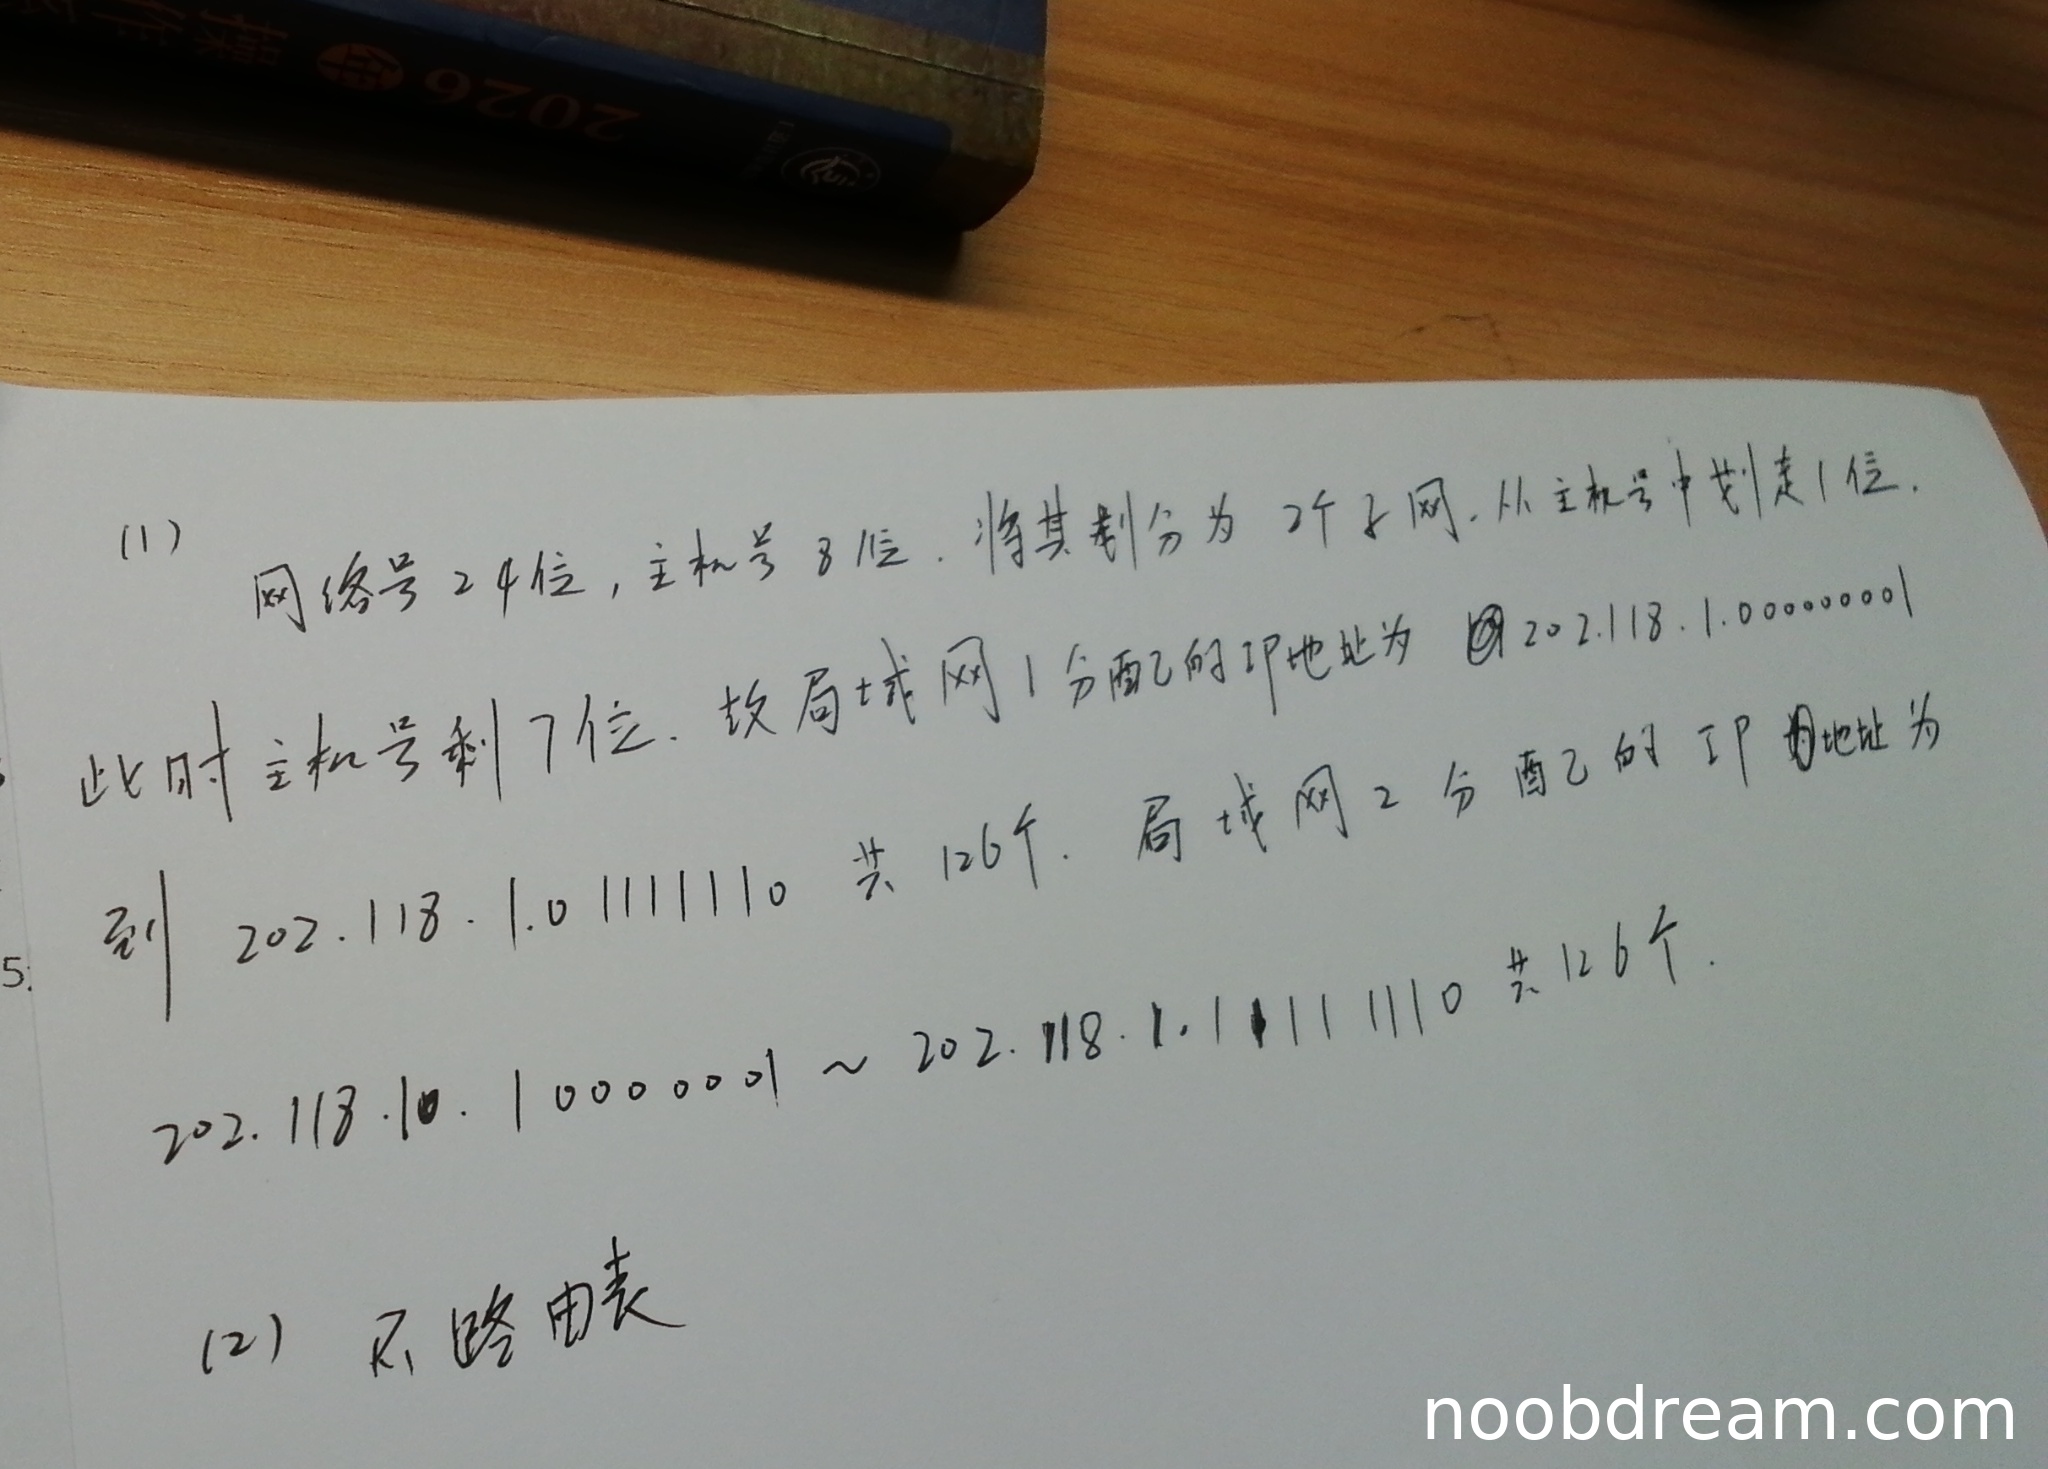 2026
操作
(1)
网络号24位,主机号8位.将其划分为2个子网.从主机号中划走1位.
此时主机号剩7位.故局域网1分配的IP地址为 202.118.1.00000001
到 202.118.1.01111110 共126个. 局域网2分配的IP地址为
202.118.1.10000001 ~ 202.118.1.11111110 共126个.
5:
(2) R1路由表
noobdream.com